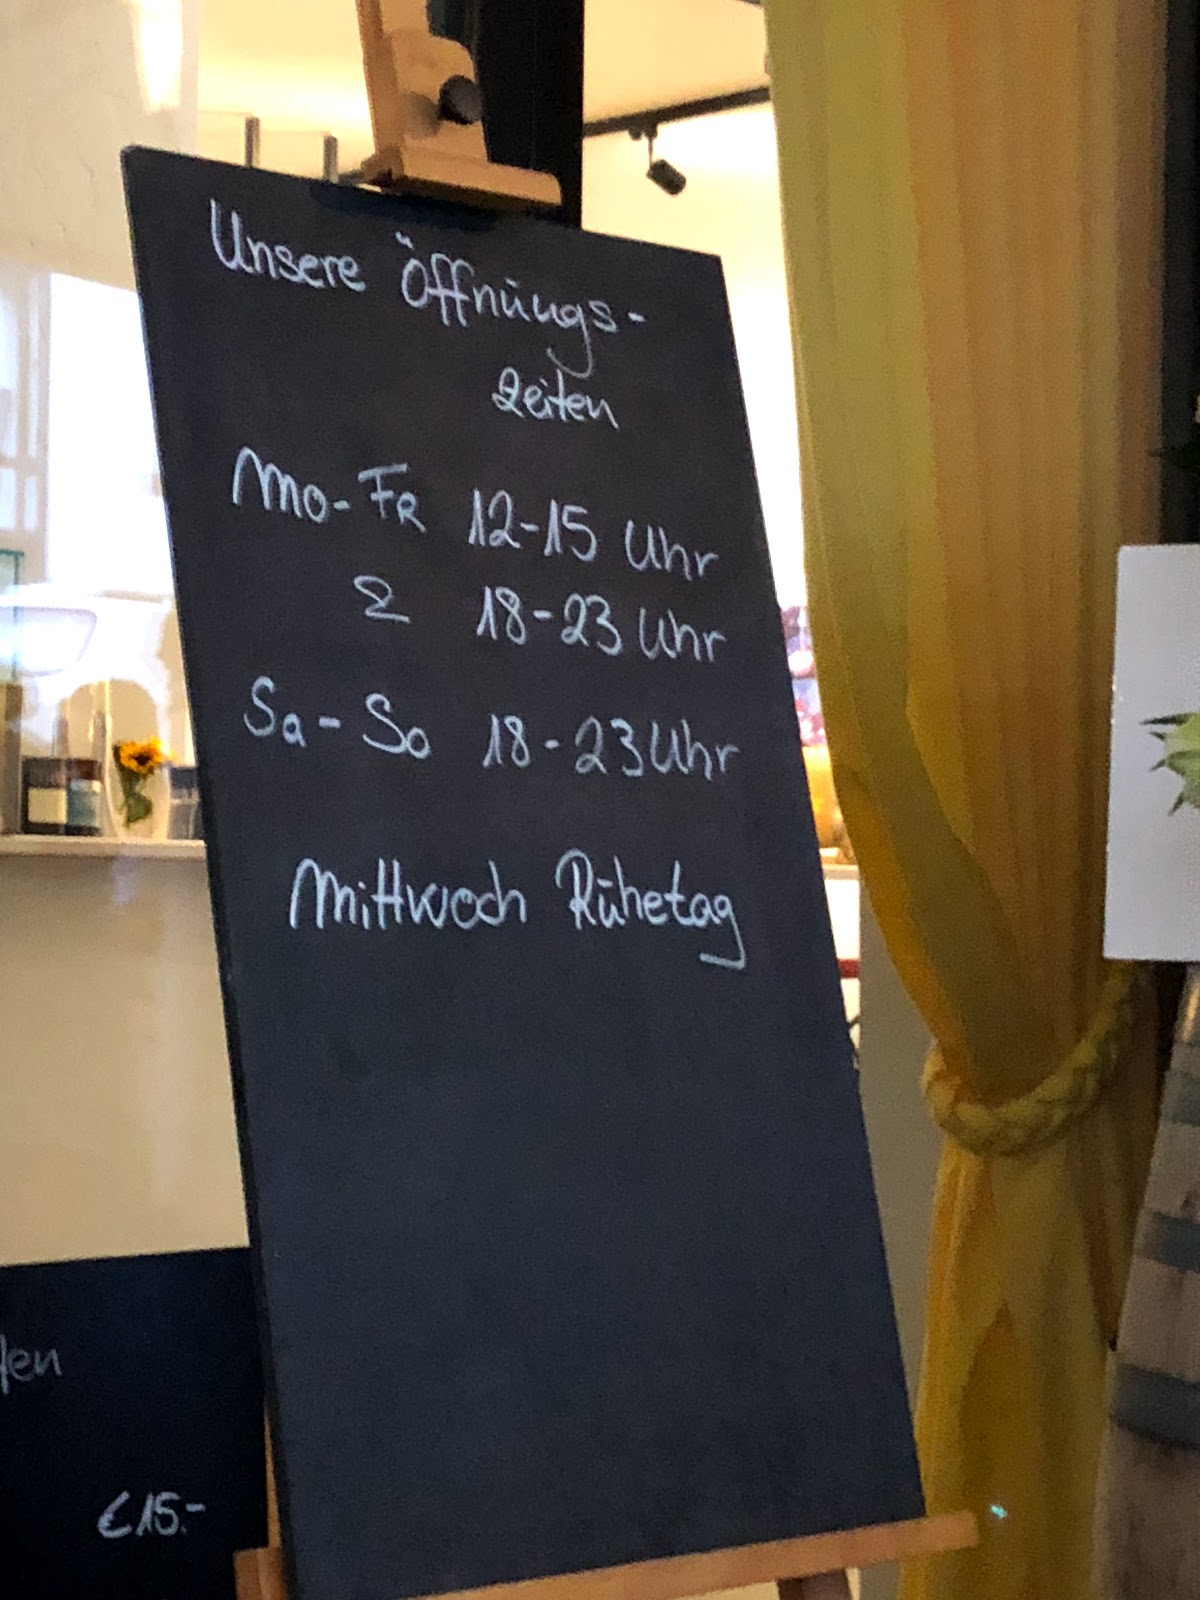 Unsere Öffnungs-
zeiten
Mo-FR 12-15 Uhr
& 18-23 Uhr
Sa-So 18-23 Uhr
Mittwoch Ruhetag
€15.-